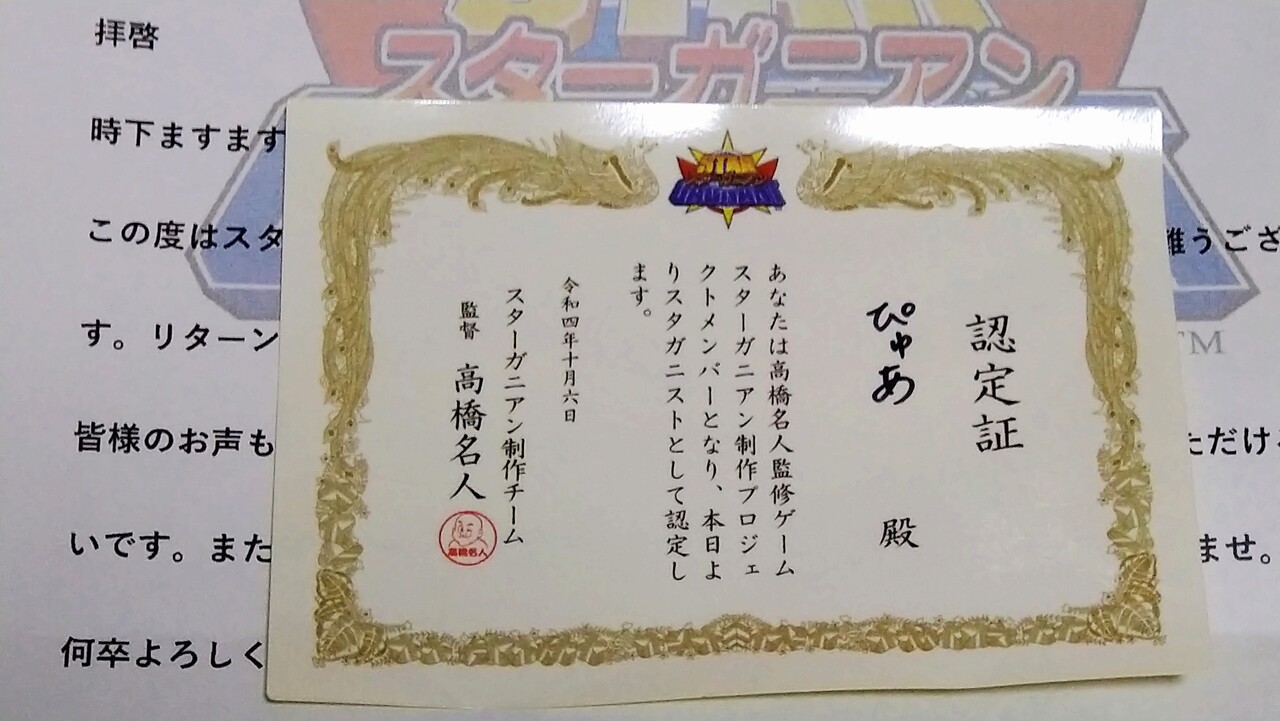 拝啓
スターガニアン
時下ますます
この度はスタ
難うござ
す。リターン
TM
皆様のお声も
ただける
いです。また
ませ。
何卒よろしく
STAR
スターガニアン
認定証
ぴゅあ 殿
あなたは高橋名人監修ゲーム
スターガニアン制作プロジェ
クトメンバーとなり、本日よ
りスタガニストとして認定し
ます。
令和四年十月六日
スターガニアン制作チーム
監督 高橋名人
高橋名人